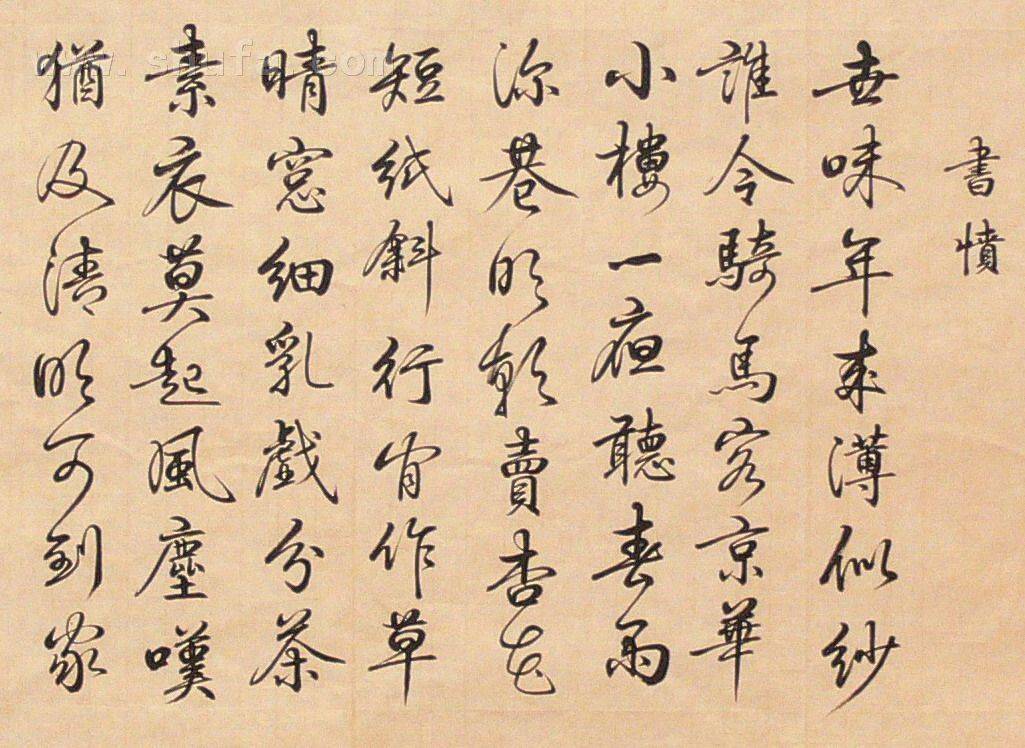 書憤
世味年來薄似紗
誰令騎馬客京華
小樓一夜聽春雨
深巷明朝賣杏花
短紙斜行閒作草
晴窓細乳戲分茶
素衣莫起風塵嘆
猶及清明可到家